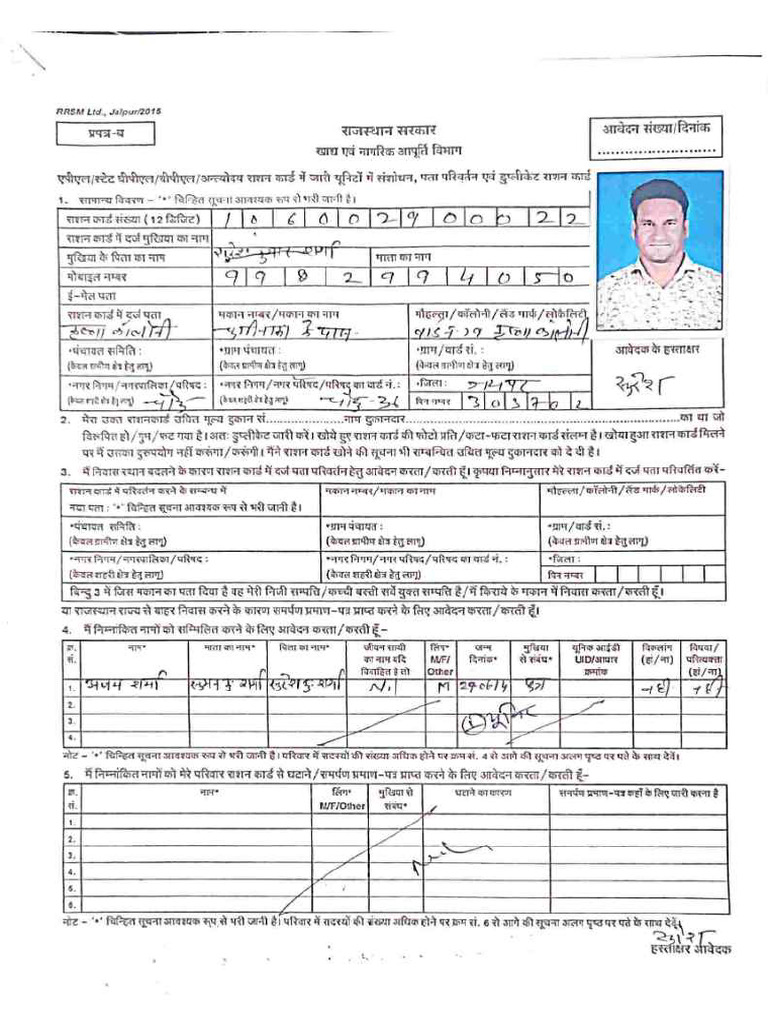 RRSM Ltd., Jaipur/2015
प्रपत्र-ब
राजस्थान सरकार
खाद्य एवं नागरिक आपूर्ति विभाग
आवेदन संख्या/दिनांक
एपीएल/स्टेट बीपीएल/बीपीएल/अन्त्योदय राशन कार्ड में जारी यूनिटों में संशोधन, पता परिवर्तन एवं डुप्लीकेट राशन कार्ड
1. सामान्य विवरण – '*' चिन्हित सूचना आवश्यक रूप से भरी जानी है।
राशन कार्ड संख्या (12 डिजिट) 1 0 6 0 0 2 9 0 0 0 2 2
राशन कार्ड में दर्ज मुखिया का नाम
मुखिया के पिता का नाम सुरेश कुमार शर्मा माता का नाम
मोबाइल नम्बर 9 9 8 2 9 9 4 0 5 0
ई-मेल पता
राशन कार्ड में दर्ज पता मकान नम्बर/मकान का नाम मौहल्ला/कॉलोनी/लैंड मार्क/लोकेलिटी
कॉलोनी के पास कॉलोनी
*पंचायत समिति : *ग्राम पंचायत : *ग्राम/वार्ड सं. : आवेदक के हस्ताक्षर
(केवल ग्रामीण क्षेत्र हेतु लागू) (केवल ग्रामीण क्षेत्र हेतु लागू) (केवल ग्रामीण क्षेत्र हेतु लागू)
सुरेश
*नगर निगम/नगरपालिका/परिषद : *नगर निगम/नगर परिषद/परिषद का वार्ड नं. : *जिला : जयपुर
(केवल शहरी क्षेत्र हेतु लागू) (केवल शहरी क्षेत्र हेतु लागू) पिन नम्बर 3 0 3 7 0 2
2. मेरा उक्त राशनकार्ड उचित मूल्य दुकान सं. नाम दुकानदार का था जो
विरूपित हो/गुम/फट गया है। अतः डुप्लीकेट जारी करें। खोये हुए राशन कार्ड की फोटो प्रति/कटा-फटा राशन कार्ड संलग्न है। खोया हुआ राशन कार्ड मिलने
पर मैं उसका दुरुपयोग नहीं करूंगा/करूंगी। मैंने राशन कार्ड खोने की सूचना भी सम्बन्धित उचित मूल्य दुकानदार को दे दी है।
3. मैं निवास स्थान बदलने के कारण राशन कार्ड में दर्ज पता परिवर्तन हेतु आवेदन करता/करती हूँ। कृपया निम्नानुसार मेरे राशन कार्ड में दर्ज पता परिवर्तित करें–
राशन कार्ड में परिवर्तन करने के सम्बन्ध में मकान नम्बर/मकान का नाम मौहल्ला/कॉलोनी/लैंड मार्क/लोकेलिटी
नया पता : '*' चिन्हित सूचना आवश्यक रूप से भरी जानी है।
*पंचायत समिति : *ग्राम पंचायत : *ग्राम/वार्ड सं. :
(केवल ग्रामीण क्षेत्र हेतु लागू) (केवल ग्रामीण क्षेत्र हेतु लागू) (केवल ग्रामीण क्षेत्र हेतु लागू)
*नगर निगम/नगरपालिका/परिषद : *नगर निगम/नगर परिषद/परिषद का वार्ड नं. : *जिला :
(केवल शहरी क्षेत्र हेतु लागू) (केवल शहरी क्षेत्र हेतु लागू) पिन नम्बर
बिन्दु 3 में जिस मकान का पता दिया है वह मेरी निजी सम्पत्ति/कच्ची बस्ती सर्वे युक्त सम्पति है/मैं किराये के मकान में निवास करता/करती हूँ।
या राजस्थान राज्य से बाहर निवास करने के कारण समर्पण प्रमाण-पत्र प्राप्त करने के लिए आवेदन करता/करती हूँ।
4. मैं निम्नांकित नामों को सम्मिलित करने के लिए आवेदन करता/करती हूँ–
क्र. सं. नाम* माता का नाम* पिता का नाम* जीवन साथी का नाम यदि विवाहित है तो लिंग* M/F/Other जन्म दिनांक* मुखिया से संबंध* यूनिक आईडी UID/आधार क्रमांक विकलांग (हां/ना) विधवा/परित्यक्ता (हां/ना)
1. अजय शर्मा सुमन कु शर्मा सुरेश कु शर्मा Nil M पुत्र नहीं नहीं
2.
3. 1 यूनिट
4.
नोट – '*' चिन्हित सूचना आवश्यक रूप से भरी जानी है। परिवार में सदस्यों की संख्या अधिक होने पर क्रम सं. 4 से आगे की सूचना अलग पृष्ठ पर पते के साथ देवें।
5. मैं निम्नांकित नामों को मेरे परिवार राशन कार्ड से घटाने/समर्पण प्रमाण-पत्र प्राप्त करने के लिए आवेदन करता/करती हूँ–
क्र. सं. नाम* लिंग* M/F/Other मुखिया से संबंध* घटाने का कारण समर्पण प्रमाण-पत्र कहाँ के लिए जारी करना है
1.
2.
3.
4.
5.
6.
नोट – '*' चिन्हित सूचना आवश्यक रूप से भरी जानी है। परिवार में सदस्यों की संख्या अधिक होने पर क्रम सं. 6 से आगे की सूचना अलग पृष्ठ पर पते के साथ देवें।
सुरेश
हस्ताक्षर आवेदक